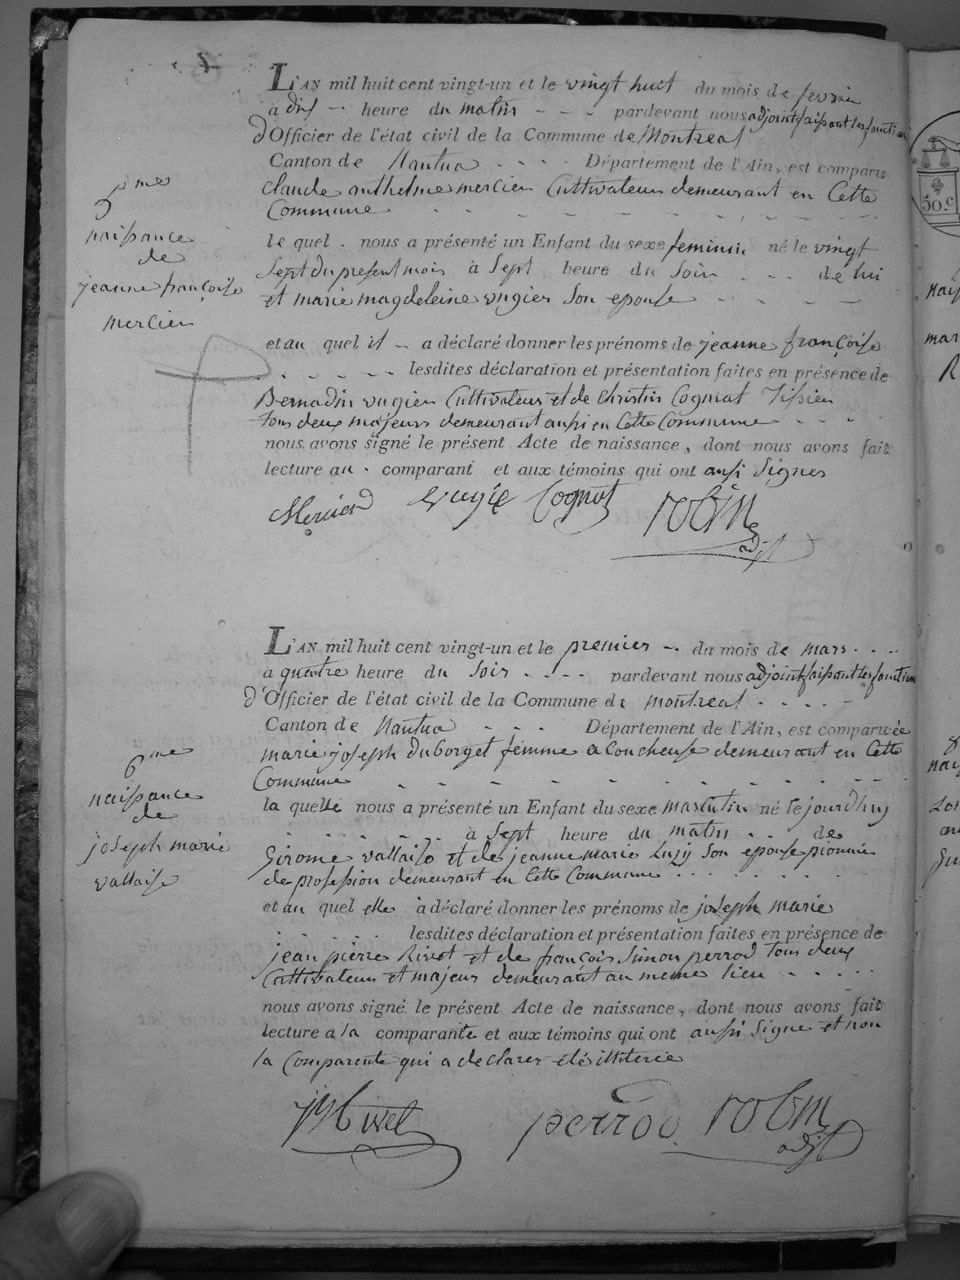 5me
naissance
de
jeanne françoise
mercier
L'AN mil huit cent vingt-un et le vingt huit du mois de fevrie
à dix heure du matin pardevant nous adjoint faisant les fonction
d'Officier de l'état civil de la Commune de Montreal
Canton de Nantua Département de l'Ain, est comparu
Claude anthelme mercier Cultivateur demeurant en Cette
Commune
le quel nous a présenté un Enfant du sexe feminin né le vingt
Sept du present mois à Sept heure du Soir de lui
et marie magdeleine vugier Son epouse
et au quel il a déclaré donner les prénoms de jeanne françoise
lesdites déclaration et présentation faites en présence de
Bernadin vugier Cultivateur et de Christin Cognat Tissier
tous deux majeurs demeurant aussi en Cette Commune
nous avons signé le présent Acte de naissance, dont nous avons fait
lecture au comparant et aux témoins qui ont aussi Signes
Mercier vugie Cognat robin
adjt
6me
naissance
de
joseph marie
vallaise
L'AN mil huit cent vingt-un et le premier du mois de mars
à quatre heure du Soir pardevant nous adjoint faisant les fonction
d'Officier de l'état civil de la Commune de montreal
Canton de Nantua Département de l'Ain, est comparuée
marie joseph duborget femme acoucheuse demeurant en Cette
Commune
la quelle nous a présenté un Enfant du sexe masculin né le jourdhuy
à Sept heure du matin de
Girome vallaise et de jeanne marie Luzy Son epouse pionnie
de profession demeurant en Cette Commune
et au quel elle a déclaré donner les prénoms de joseph marie
lesdites déclaration et présentation faites en présence de
jean pierre Rivet et de françois Simon perrod tous deux
Cultivateur et majeur demeurant au meme lieu
nous avons signé le présent Acte de naissance, dont nous avons fait
lecture a la comparante et aux témoins qui ont aussi Signe et non
la Comparente qui a declarer
perrod robin
adjt
50 c